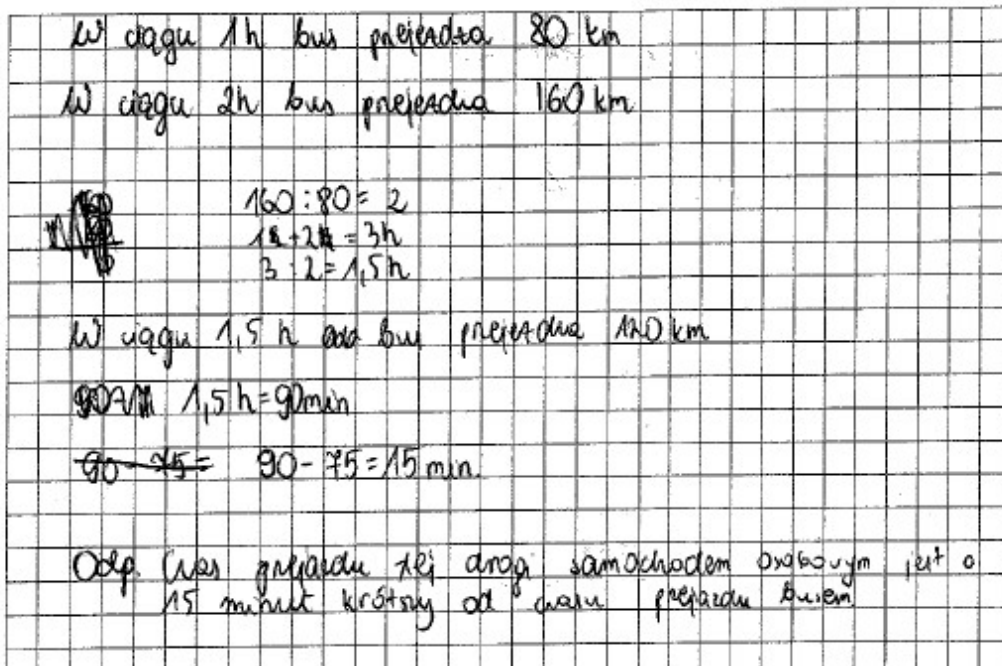 W ciągu 1h bus przejeżdża 80 km
W ciągu 2h bus przejeżdża 160 km
160 : 80 = 2
1 + 2 = 3h
3 : 2 = 1,5 h
W ciągu 1,5 h bus przejeżdża 120 km
1,5 h = 90 min
90 - 75 = 90 - 75 = 15 min.
Odp. Czas przejazdu tej drogi samochodem osobowym jest o
15 minut krótszy od czasu przejazdu busem.